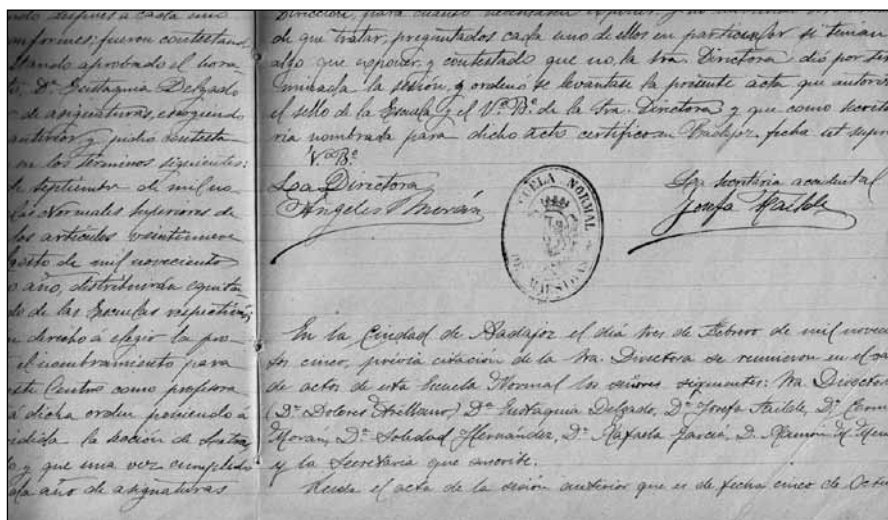 ndo después a cada uno
onformes; fueron contestan
stando aprobado el hora
to, Dª Eustaquia Delgado
de asignaturas, escogiendo
anterior y pidió contesta
en los términos siguientes:
de septiembre de mil no
las Normales Superiores de
los artículos veintinueve
gosto de mil novecientos
o año, distribuirán equita
do de las Escuelas respectivas;
n derecho á elegir la pro
el nombramiento para
este Centro como profesora
á dicha orden poniendo á
la Sección de Letras
y que una vez cumplido
ada año de asignaturas
Dirección, para cuando necesitasen
de que tratar, preguntados cada uno de ellos en particular si tenían
algo que exponer y contestado que no, la Sra. Directora dió por ter
minada la sesión, y ordenó se levantase la presente acta que autoriz
el sello de la Escuela y el Vº Bº de la Sra. Directora y que como secreta
ria nombrada para dicho acto certifico en Badajoz, fecha ut supra
Vº Bº
La Directora
Ángeles Morán
La secretaria accidental
Josefa Railde
ESCUELA NORMAL
DE MAESTRAS
En la Ciudad de Badajoz el día tres de Febrero de mil novec
tos cinco, prévia citación de la Sra. Directora se reunieron en el sa
de actos de esta Escuela Normal los señores siguientes: Sra. Director
(Dª Dolores Arellano) Dª Eustaquia Delgado, Dª Josefa Railde, Dª Carm
Morán, Dª Soledad Hernández, Dª Rafaela García, D. Ramón
y la Secretaria que suscribe.
Leida el acta de la sesión anterior que es de fecha cinco de Octu